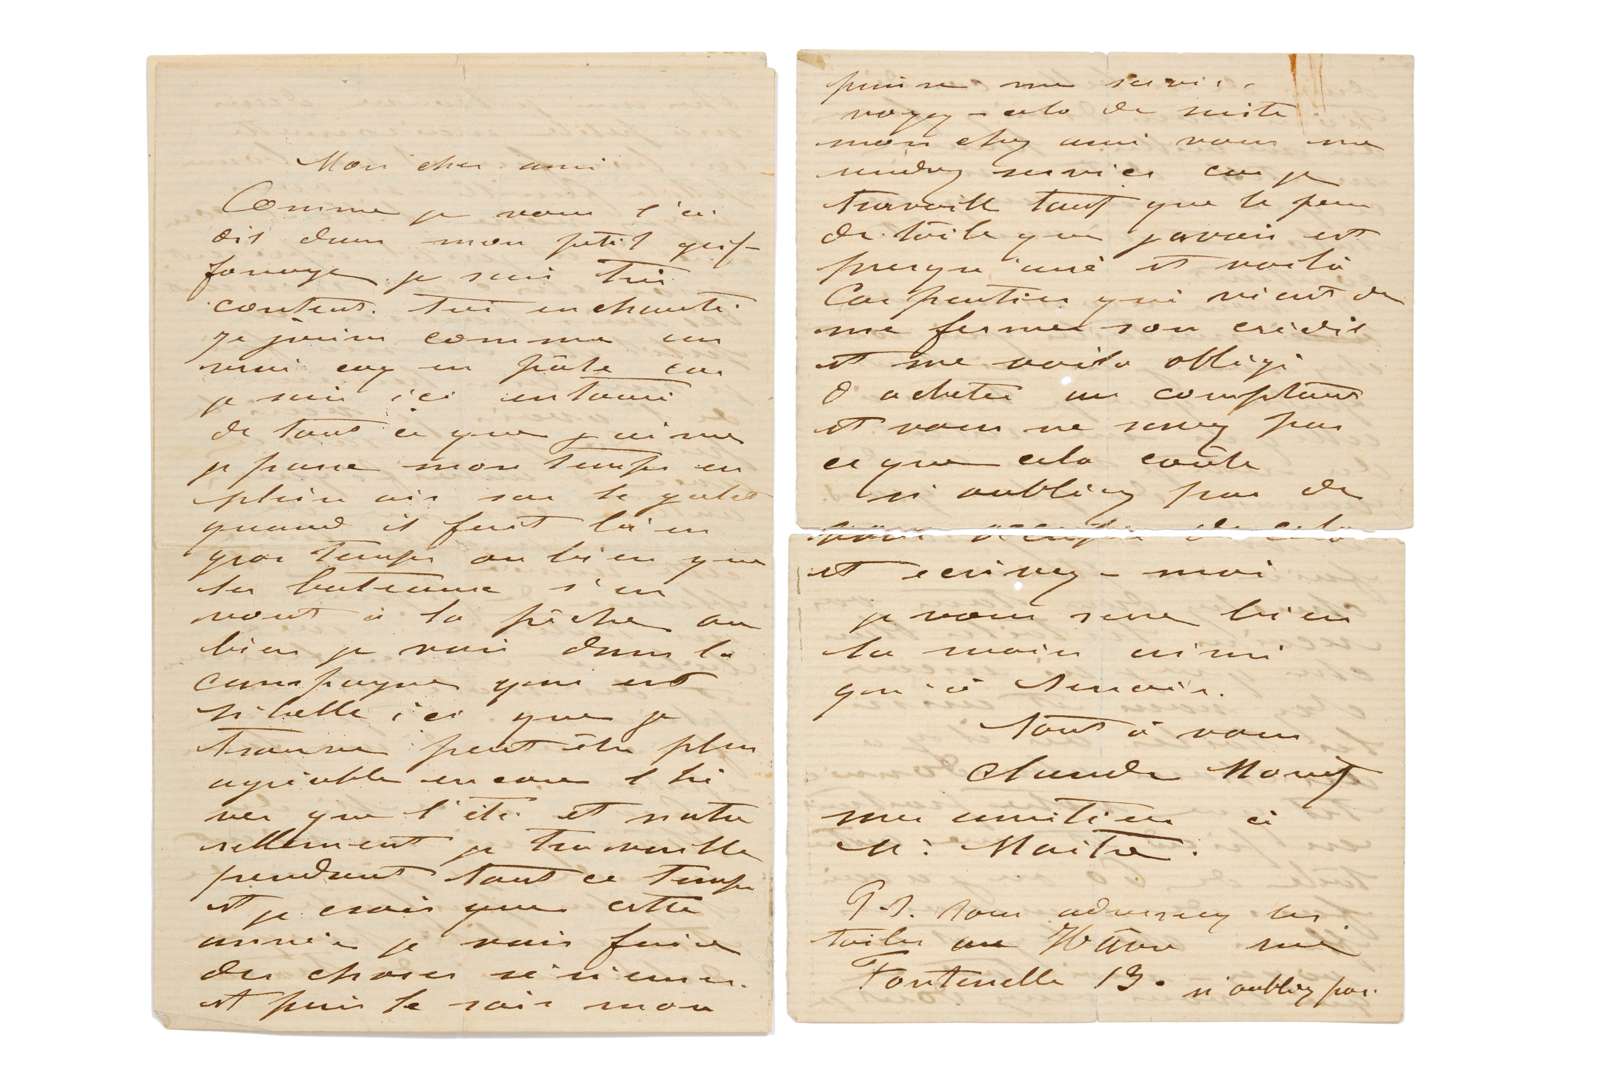 Mon cher ami
Comme je vous l'ai
dit dans mon petit grif-
fonage je suis très
content. très enchanté
je suis comme un
vrai coq en pâte car
je suis ici entouré
de tout ce que j'aime
je passe mon temps en
plein air sur le galet
quand il fait bien
gros temps ou bien que
les bateaux s'en
vont à la pêche ou
bien je vais dans la
campagne qui est
si belle ici que je
trouve peut être plus
agréable encore l'hi
ver que l'été et natu
rellement je travaille
pendant tout ce temps
et je crois que cette
année je vais faire
des choses sérieuses.
et puis le soir mon
puisse me servir.
voyez-cela de suite
mon cher ami vous me
rendrez service car je
travaille tant que le peu
de toile que j'avais est
presqu'usé et voilà
Carpentier qui vient de
me fermer son crédit
et me voilà obligé
d'acheter au comptant
et vous ne savez pas
ce que cela coûte
n'oubliez pas de
vous occuper de cela
et écrivez-moi
je vous serre bien
la main ainsi
qu'à Renoir.
tout à vous
Claude Monet
mes amitiés à
M. Maître.
P.S. vous adresserez les
toiles au Havre rue
Fontenelle 13. n'oubliez pas.